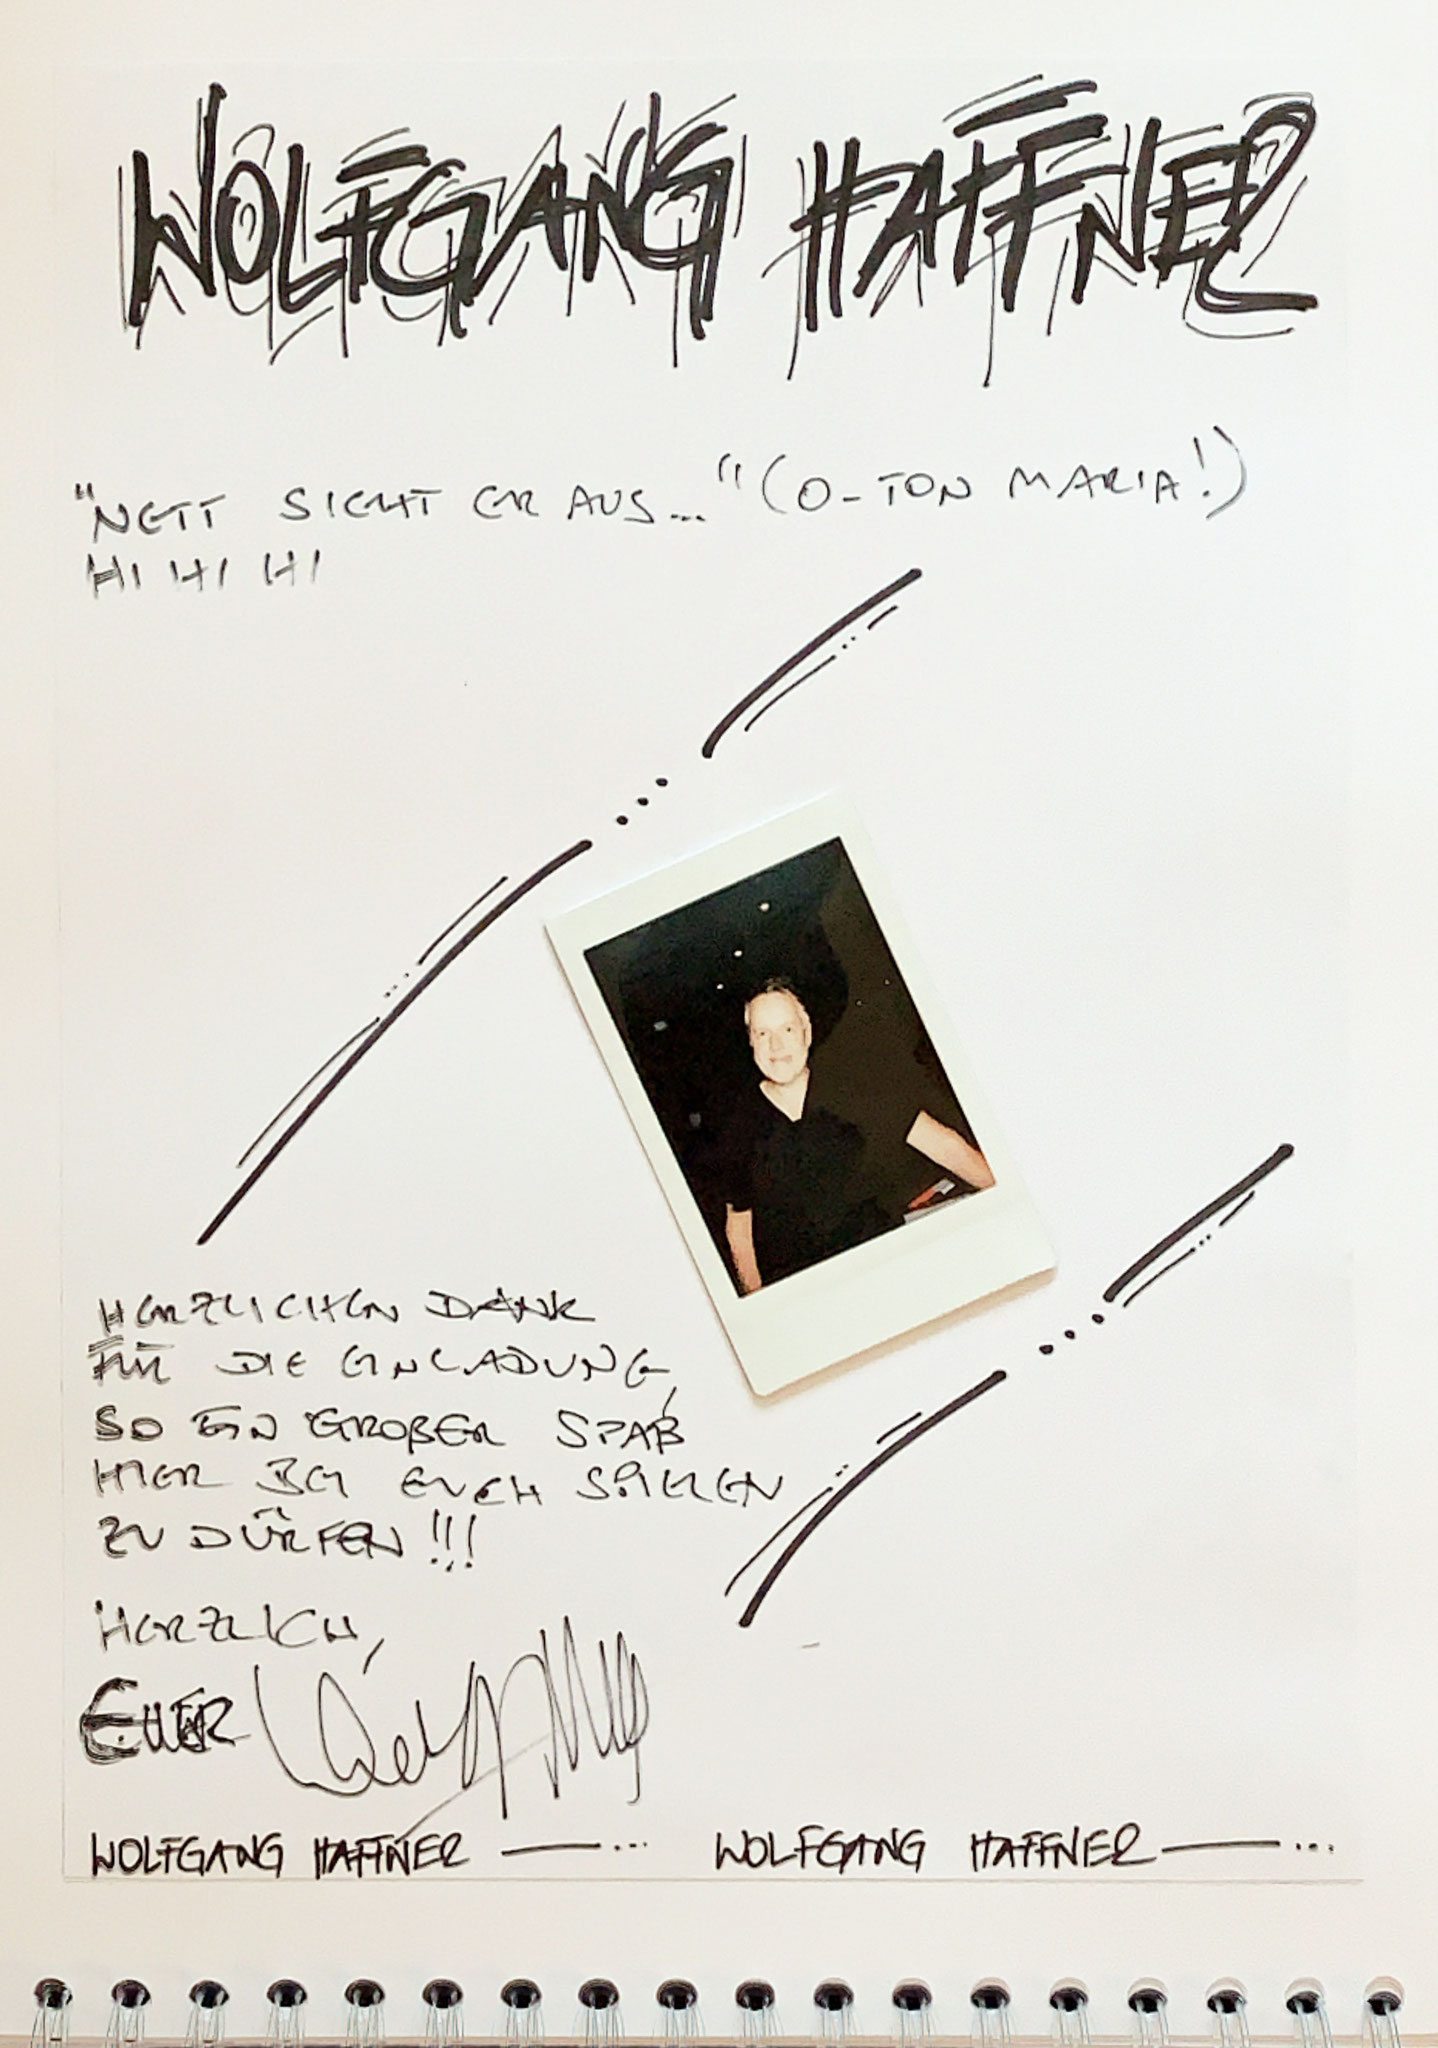 WOLFGANG HAFFNER
"NETT SIEHT ER AUS..." (O-TON MARIA!)
HI HI HI
HERZLICHEN DANK
FÜR DIE EINLADUNG,
SO EIN GROßER SPAß
HIER BEI EUCH SPIELEN
ZU DÜRFEN!!!
HERZLICH,
EUER
WOLFGANG HAFFNER ——... WOLFGANG HAFFNER ——...